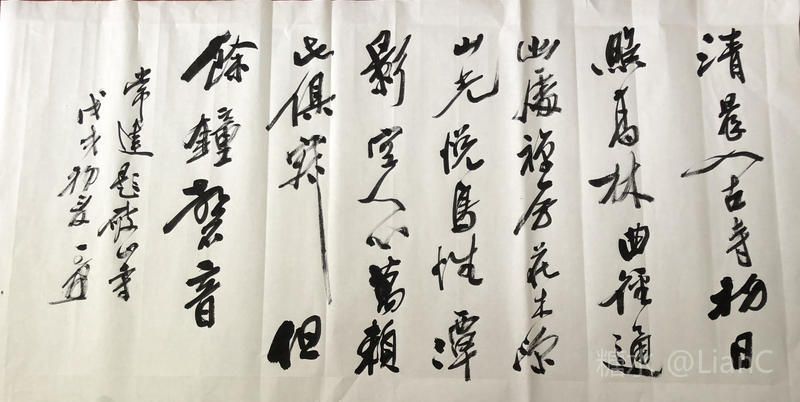 清晨入古寺初日
照高林曲径通
幽處禅房花木深
山光悦鳥性潭
影空人心萬籟
此俱寂但
餘鐘磬音
常建题破山寺
戊戌初夏
糖水 @LianC